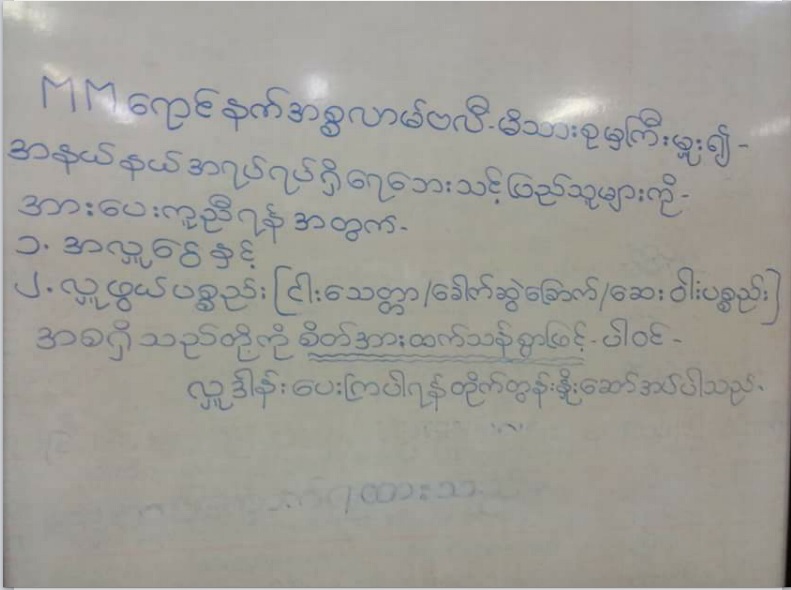 MM ရောင်နက်အစ္စလာမ်ဗလီ-မိသားစုမှကြီးမှူး၍-
အနယ်နယ်အရပ်ရပ်ရှိရေဘေးသင့်ပြည်သူများကို-
အားပေးကူညီရန်အတွက်-
၁. အလှူငွေနှင့်
၂. လှူဖွယ်ပစ္စည်း [ငါးသေတ္တာ/ခေါက်ဆွဲခြောက်/ဆေးဝါးပစ္စည်း]
အစရှိသည်တို့ကို စိတ်အားထက်သန်စွာဖြင့်-ပါဝင်-
လှူဒါန်းပေးကြပါရန်တိုက်တွန်းနှိုးဆော်အပ်ပါသည်-